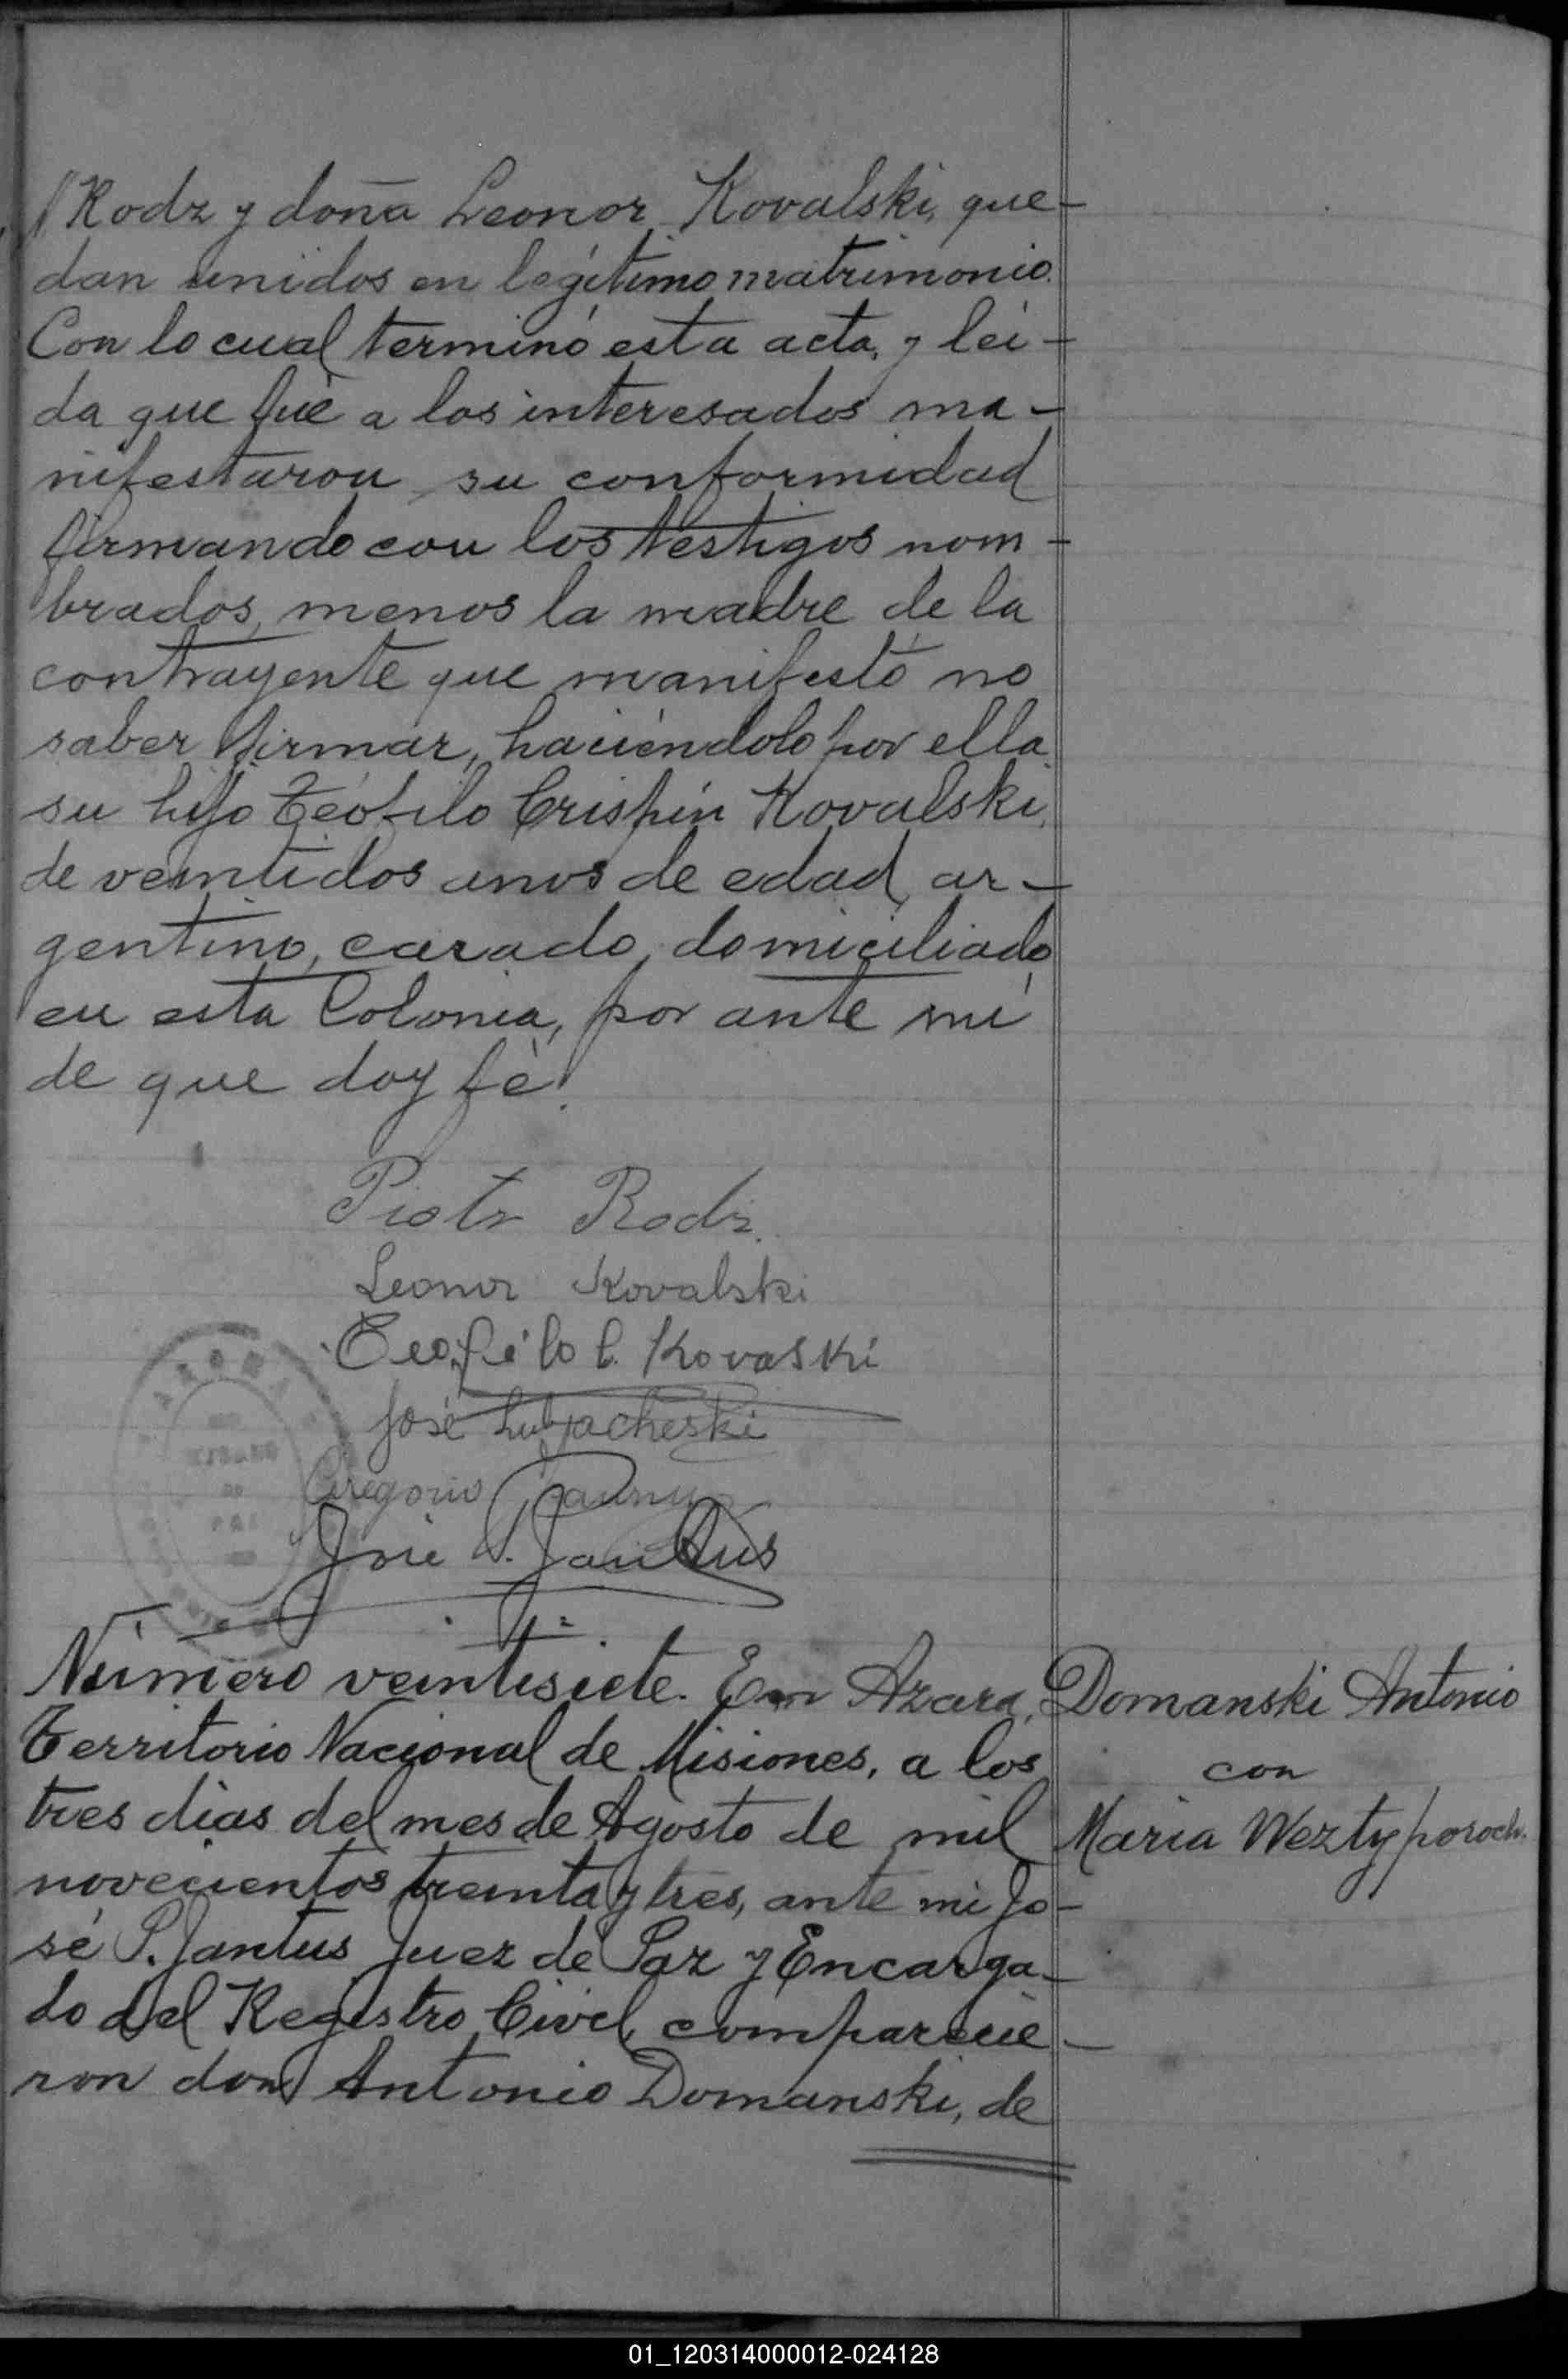 Rodz y doña Leonor Kovalski, que-
dan unidos en legítimo matrimonio.
Con lo cual terminó esta acta, y lei-
da que fué a los interesados ma-
nifestaron su conformidad
firmando con los testigos nom-
brados, menos la madre de la
contrayente que manifestó no
saber firmar, haciéndolo por ella
su hijo Teófilo Crispín Kovalski,
de veintidos anos de edad, ar-
gentino, casado, domiciliado
en esta Colonia, por ante mí
de que doy fé.
Piotr Rodz.
Leonor Kovalski
Teofilo C. Kovaski
José
Gregorio
José P. Jantus
Número veintisiete. En Azara,
Territorio Nacional de Misiones, a los
tres dias del mes de Agosto de mil
novecientos treinta y tres, ante mi Jo-
sé P. Jantus Juez de Paz y Encarga-
do del Registro Civil, comparecie-
ron don Antonio Domanski, de
Domanski Antonio
con
MariaWeztyporoch.
01_120314000012-024128